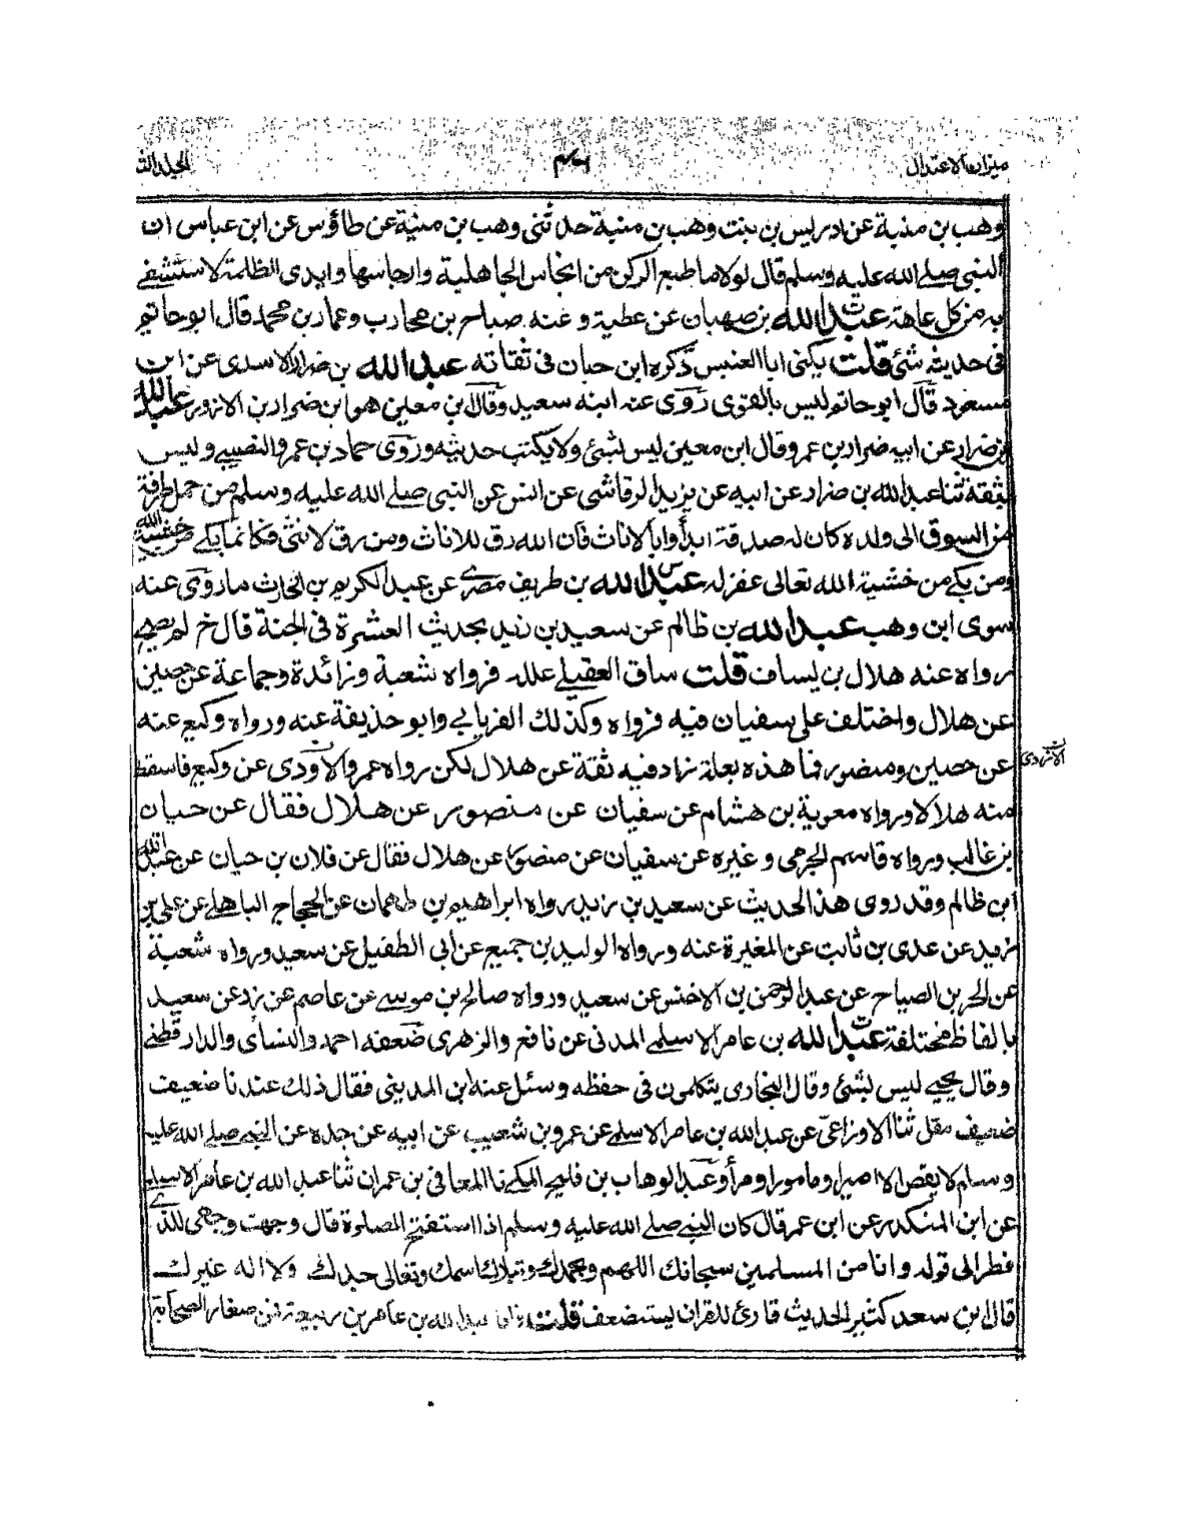 ميزان الاعتدال
المجلد الث
وهب بن منبة عن ادريس بن بنت وهب بن منبة حدثنى وهب بن منبة عن طاؤس عن ابن عباس ان
النبي صلى الله عليه وسلم قال لولا ما طبع الركن من انجاس الجاهلية وارجاسها وايدى الظلمة لاستشفى
به من كل عاهة عبد الله بن صهبان عن عطية وعنه صباح بن محارب وعمار بن محمد قال ابو حاتم
فى حديثه شئ قلت يكنى ابا العنبس ذكره ابن حبان فى ثقاته عبد الله بن ضرار الاسدى عن ابن
مسعود قال ابو حاتم ليس بالقوى روى عنه ابنه سعيد وقال ابن معين هو ابن ضرار بن الازور عبد الله
بن ضرار عن ابيه ضرار بن عمرو قال ابن معين ليس بشئ ولا يكتب حديثه وروى حماد بن عمرو النصيبى وليس
بثقة ثنا عبد الله بن ضرار عن ابيه عن يزيد الرقاشى عن انس عن النبى صلى الله عليه وسلم من حمل طرفة
من السوق الى ولده كان له صدقة ابدأوا بالاناث فان الله رق للاناث ومن رق لانثى فكانما بكى من خشية الله
ومن بكى من خشية الله تعالى غفر له عبد الله بن طريف مصرى عن عبد الكريم بن الحارث ما روى عنه
سوى ابن وهب عبد الله بن ظالم عن سعيد بن زيد بحديث العشرة فى الجنة قال خ لم يصح
رواه عنه هلال بن يساف قلت ساق العقيلى علله فرواه شعبة وزائدة وجماعة عن حصين
عن هلال واختلف على سفيان فيه فرواه وكذلك الفريابي وابو حذيفة عنه ورواه وكيع عنه
عن حصين ومنصور فما هذه بعلة زاد فيه ثقة عن هلال لكن رواه عمرو الاودى عن وكيع فاسقط
منه هلالا ورواه معوية بن هشام عن سفيان عن منصور عن هلال فقال عن حيان
بن غالب ورواه قاسم الجرمى وغيره عن سفيان عن منصور عن هلال فقال عن فلان بن حيان عن عبد الله
ابن ظالم وقد روى هذا الحديث عن سعيد بن زيد رواه ابراهيم بن طهمان عن الحجاج الباهلى عن على بن
زيد عن عدى بن ثابت عن المغيرة عنه ورواه الوليد بن جميع عن ابى الطفيل عن سعيد ورواه شعبة
عن الحر بن الصياح عن عبد الرحمن بن الاخنس عن سعيد ورواه صالح بن موسى عن عاصم عن زر عن سعيد
بالفاظ مختلفة عبد الله بن عامر الاسلمى المدنى عن نافع والزهرى ضعفه احمد والنسائى والدارقطنى
وقال يحيى ليس بشئ وقال البخارى يتكلمون فى حفظه وسئل عنه ابن المدينى فقال ذلك عندنا ضعيف
ضعيف مقل ثنا الاوزاعى عن عبد الله بن عامر الاسلمى عن عمرو بن شعيب عن ابيه عن جده عن النبى صلى الله عليه
وسلم لا يقص الا امير او مامور او مرأ وعبد الوهاب بن فليح المكى نا المعافى بن عمران ثنا عبد الله بن عامر الاسلمى
عن ابن المنكدر عن ابن عمر قال كان النبى صلى الله عليه وسلم اذا استفتح الصلوة قال وجهت وجهى للذى
فطر الى قوله وانا من المسلمين سبحانك اللهم وبحمدك وتبارك اسمك وتعالى جدك ولا اله غيرك
قال ابن سعد كثير الحديث قارئ للقران يستضعف قلت فاما عبد الله بن عامر بن ربيعة فمن صغار الصحابة